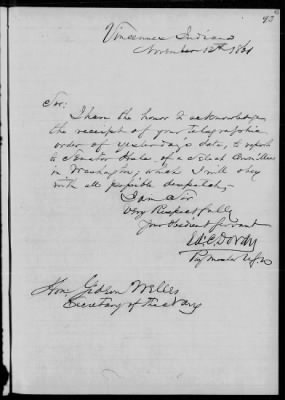 93
Vincennes Indiana
November 12th 1861
Sir:
I have the honor to acknowledge
the receipt of your Telegraphic
order of yesterday's date, to report
to Senator Hale, of a Select Committee
in Washington; which I will obey
with all possible despatch,
I am Sir
Very Respectfully
Your Obedient Servant
Ed. C. Doran
Pay master U.S.N.
Hon. Gideon Welles
Secretary of the Navy